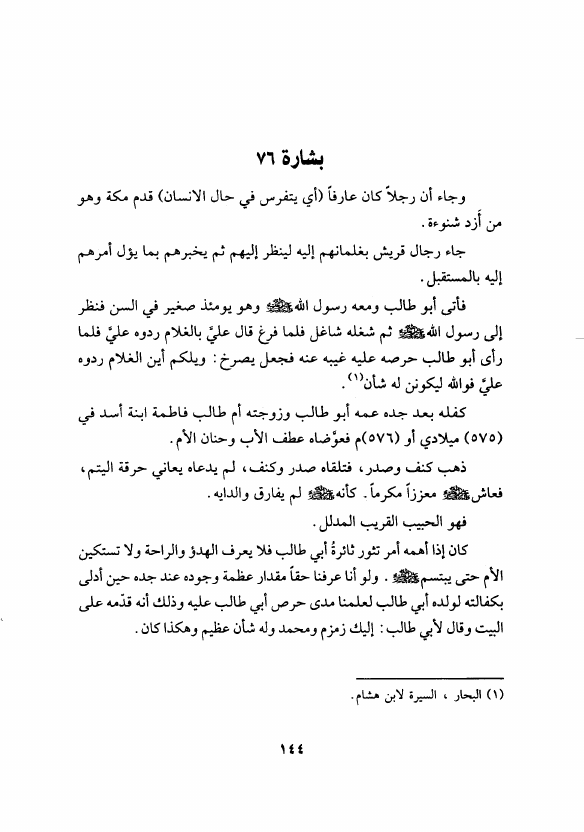 بشارة ٧٦
وجاء أن رجلاً كان عارفاً (أي يتفرس في حال الانسان) قدم مكة وهو
من أَزد شنوءة.
جاء رجال قريش بغلمانهم إليه لينظر إليهم ثم يخبرهم بما يؤل أمرهم
إليه بالمستقبل.
فأتى أبو طالب ومعه رسول الله ﷺ وهو يومئذ صغير في السن فنظر
إلى رسول الله ﷺ ثم شغله شاغل فلما فرغ قال عليَّ بالغلام ردوه عليَّ فلما
رأى أبو طالب حرصه عليه غيبه عنه فجعل يصرخ: ويلكم أين الغلام ردوه
عليَّ فوالله ليكونن له شأن(١).
كفله بعد جده عمه أبو طالب وزوجته أم طالب فاطمة ابنة أسد في
(٥٧٥) ميلادي أو (٥٧٦)م فعوَّضاه عطف الأب وحنان الأم.
ذهب كنف وصدر، فتلقاه صدر وكنف، لم يدعاه يعاني حرقة اليتم،
فعاش ﷺ معززاً مكرماً. كأنه ﷺ لم يفارق والدايه.
فهو الحبيب القريب المدلل.
كان إذا أهمه أمر تثور ثائرةُ أبي طالب فلا يعرف الهدؤ والراحة ولا تستكين
الأم حتى يبتسم ﷺ. ولو أنا عرفنا حقاً مقدار عظمة وجوده عند جده حين أدلى
بكفالته لولده أبي طالب لعلمنا مدى حرص أبي طالب عليه وذلك أنه قدّمه على
البيت وقال لأبي طالب: إليك زمزم ومحمد وله شأن عظيم وهكذا كان.
(١) البحار ، السيرة لابن هشام.
١٤٤